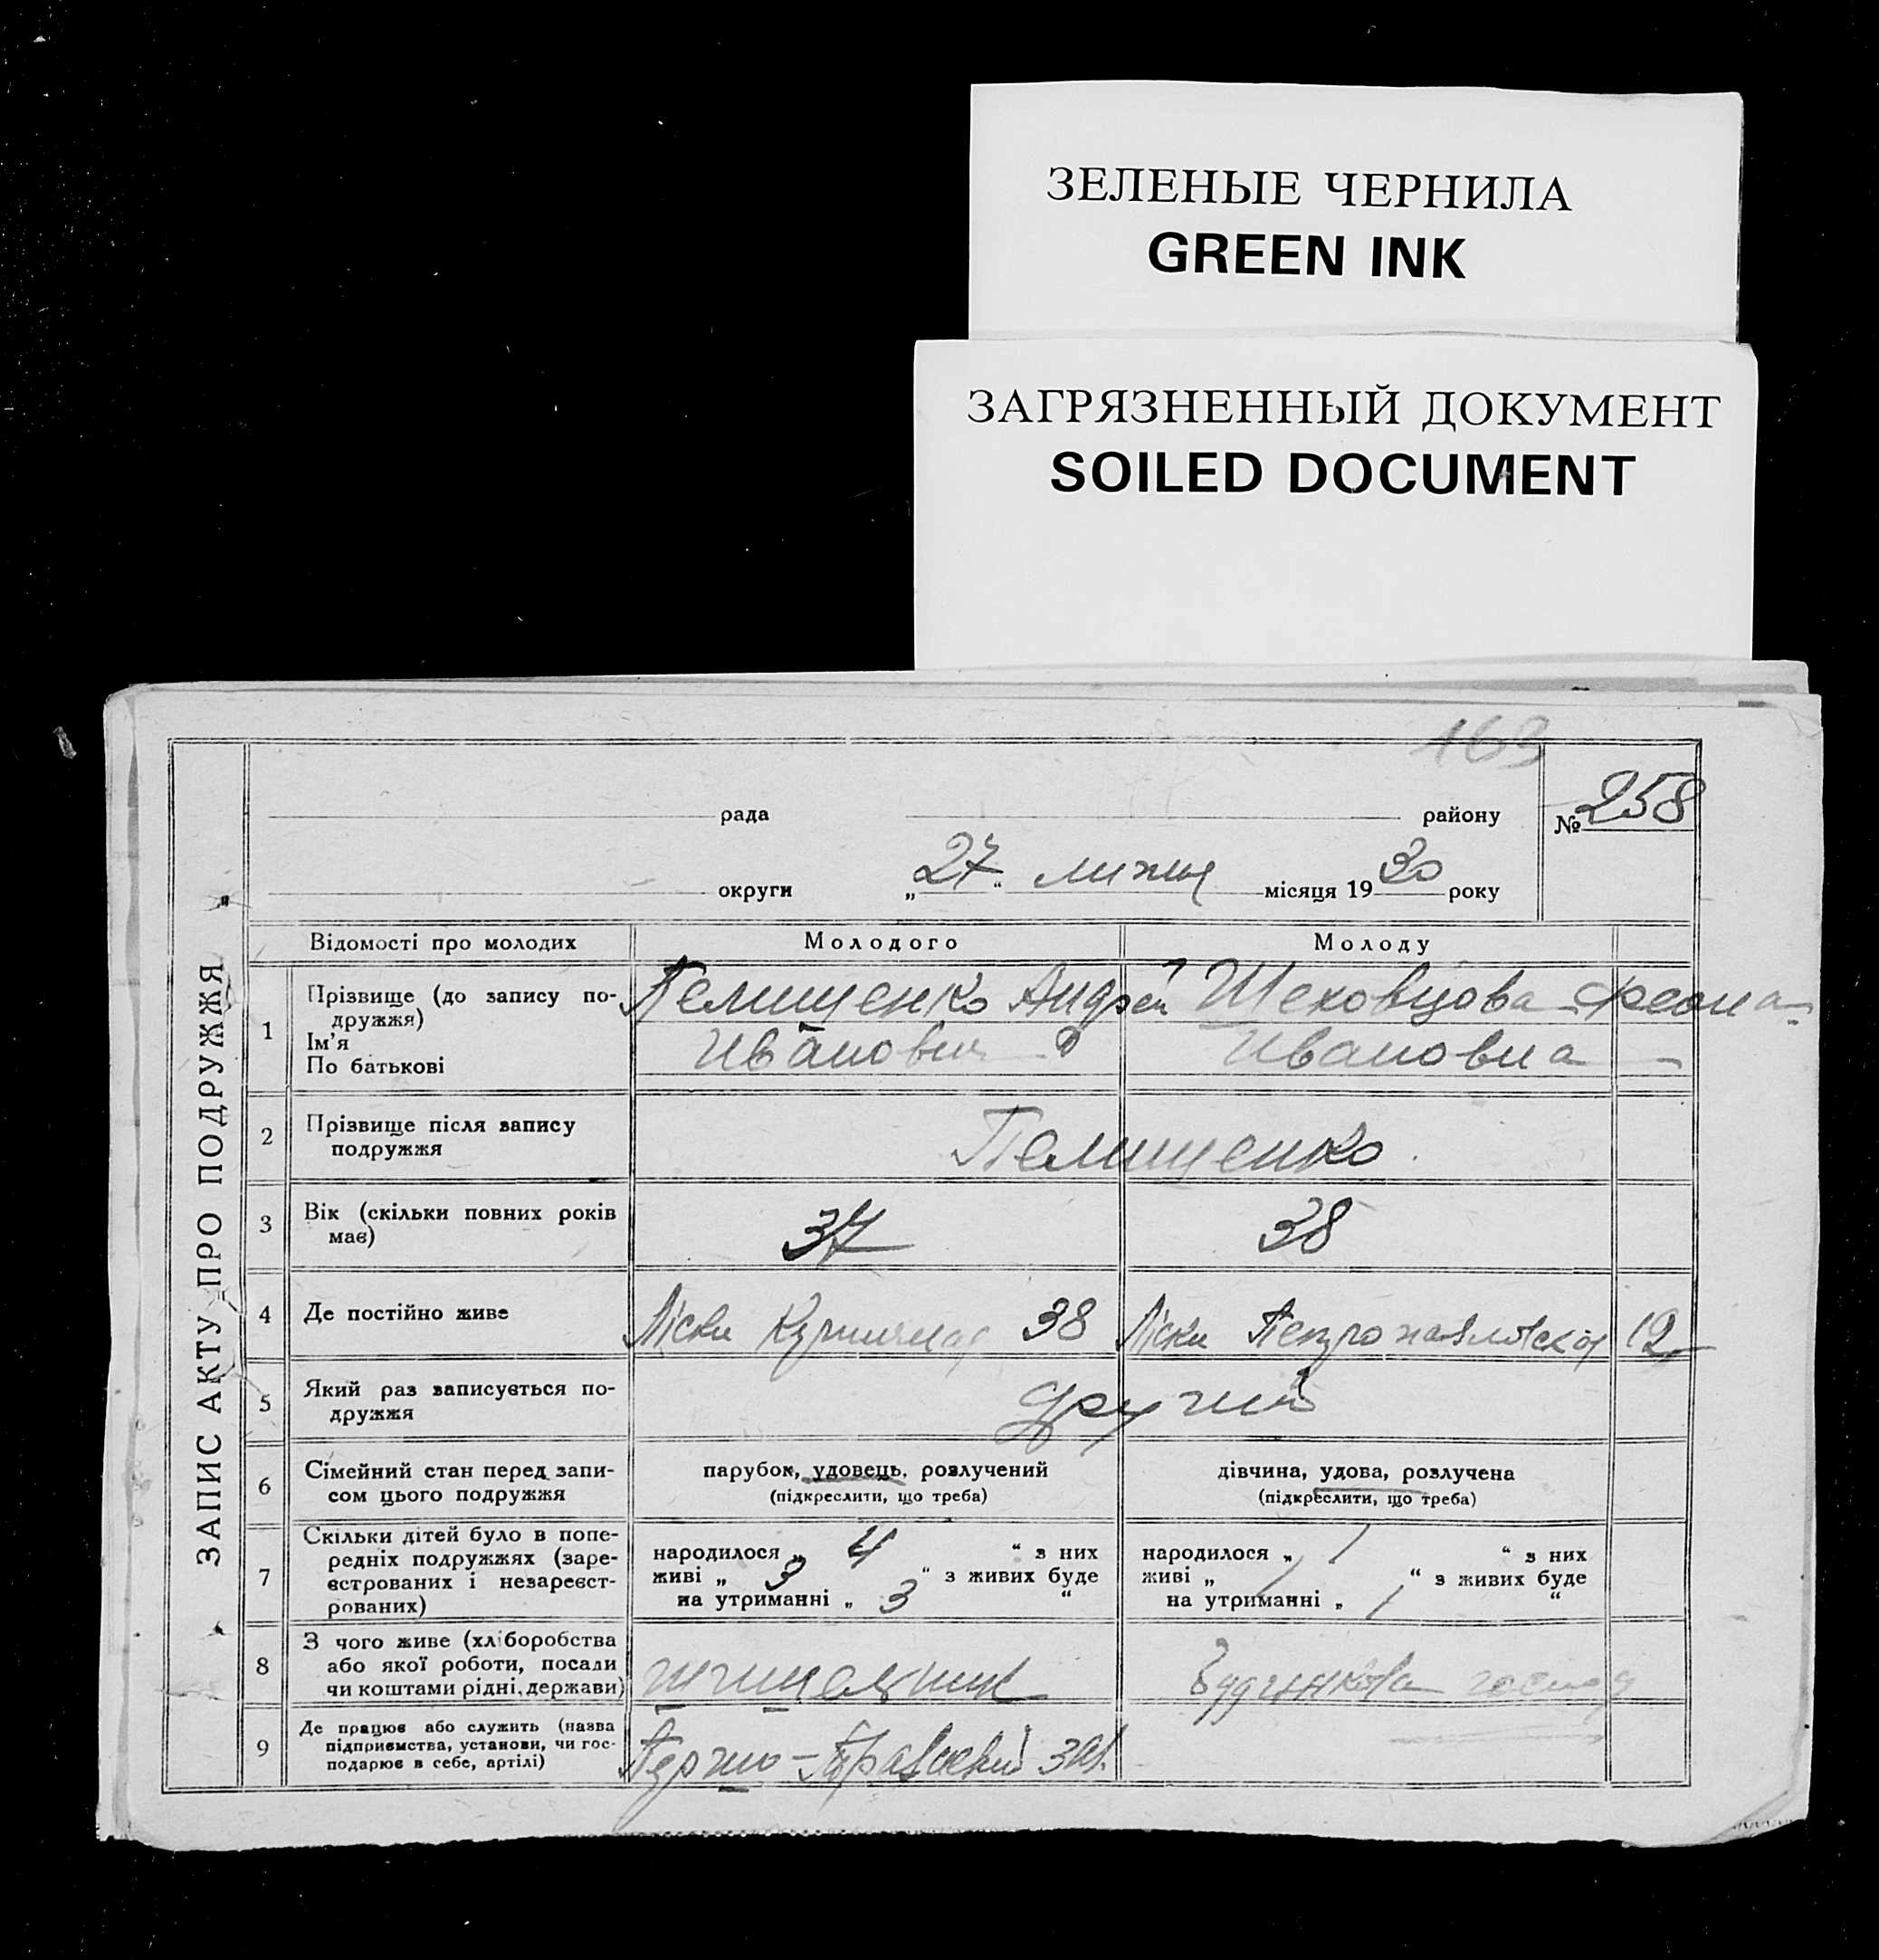 ЗЕЛЕНЫЕ ЧЕРНИЛА
GREEN INK
ЗАГРЯЗНЕННЫЙ ДОКУМЕНТ
SOILED DOCUMENT
163
рада району № 258
округи „27“ липня місяця 1930 року
ЗАПИС АКТУ ПРО ПОДРУЖЖЯ
Відомості про молодих Молодого Молоду
1 Прізвище (до запису по-
дружжя)
Ім'я
По батькові
Пелищенко Андрей
Иванович
Шеховцова
Ивановна
2 Прізвище після запису
подружжя
Пелищенко
3 Вік (скільки повних років
має)
37 38
4 Де постійно живе
Ліски 38 Ліски 12
5 Який раз записується по-
дружжя
другий
6 Сімейний стан перед запи-
сом цього подружжя
парубок, удовець, розлучений
(підкреслити, що треба)
дівчина, удова, розлучена
(підкреслити, що треба)
7 Скільки дітей було в попе-
редніх подружжях (заре-
єстрованих і незареєст-
рованих)
народилося „ 4 “ з них
живі „ 3 “ з живих буде
на утриманні „ 3 “
народилося „ 1 “ з них
живі „ 1 “ з живих буде
на утриманні „ 1 “
8 З чого живе (хліборобства
або якої роботи, посади
чи коштами рідні, держави)
9 Де працює або служить (назва
підприємства, установи, чи гос-
подарює в себе, артілі)